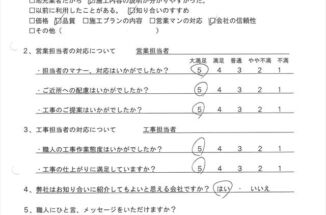 □施工業者だから ☑施工内容の説明が分かりやすかった。
□以前に利用したことがある。 ☑知り合いのすすめ
□価格 ☑品質 □施工プランの内容 □営業マンの対応 ☑会社の信頼性
□その他( )
2、営業担当者の対応について 営業担当者
大満足 満足 普通 やや不満 不満
・担当者のマナー、対応はいかがでしたか? 5 4 3 2 1
・ご近所への配慮はいかがでしたか? 5 4 3 2 1
・工事のご提案はいかがでしたか? 5 4 3 2 1
3、工事担当者の対応について 工事担当者
・職人の工事作業態度はいかがでしたか? 5 4 3 2 1
・工事の仕上がりに満足していますか? 5 4 3 2 1
4、弊社はお知り合いに紹介してもよいと思える会社ですか? はい ・ いいえ
5、職人にひと言、メッセージをいただけますか?